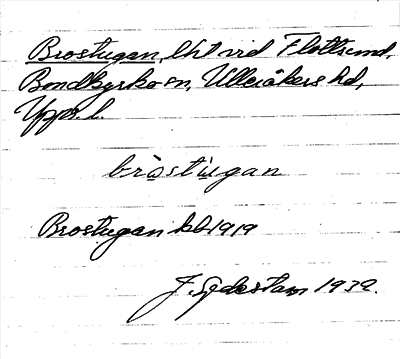 Brostugan, lht vid Flottsund,
Bondkyrko sn, Ulleråkers hd,
Upps. l.
bròstùgan
Brostugan kb 1919
1932.